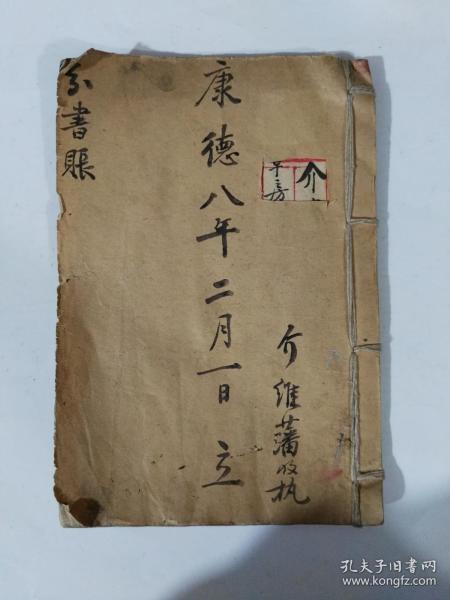 介
早三房
介維藩收执
康德八年二月一日立
分書賬
孔夫子旧书网
www.kongfz.com